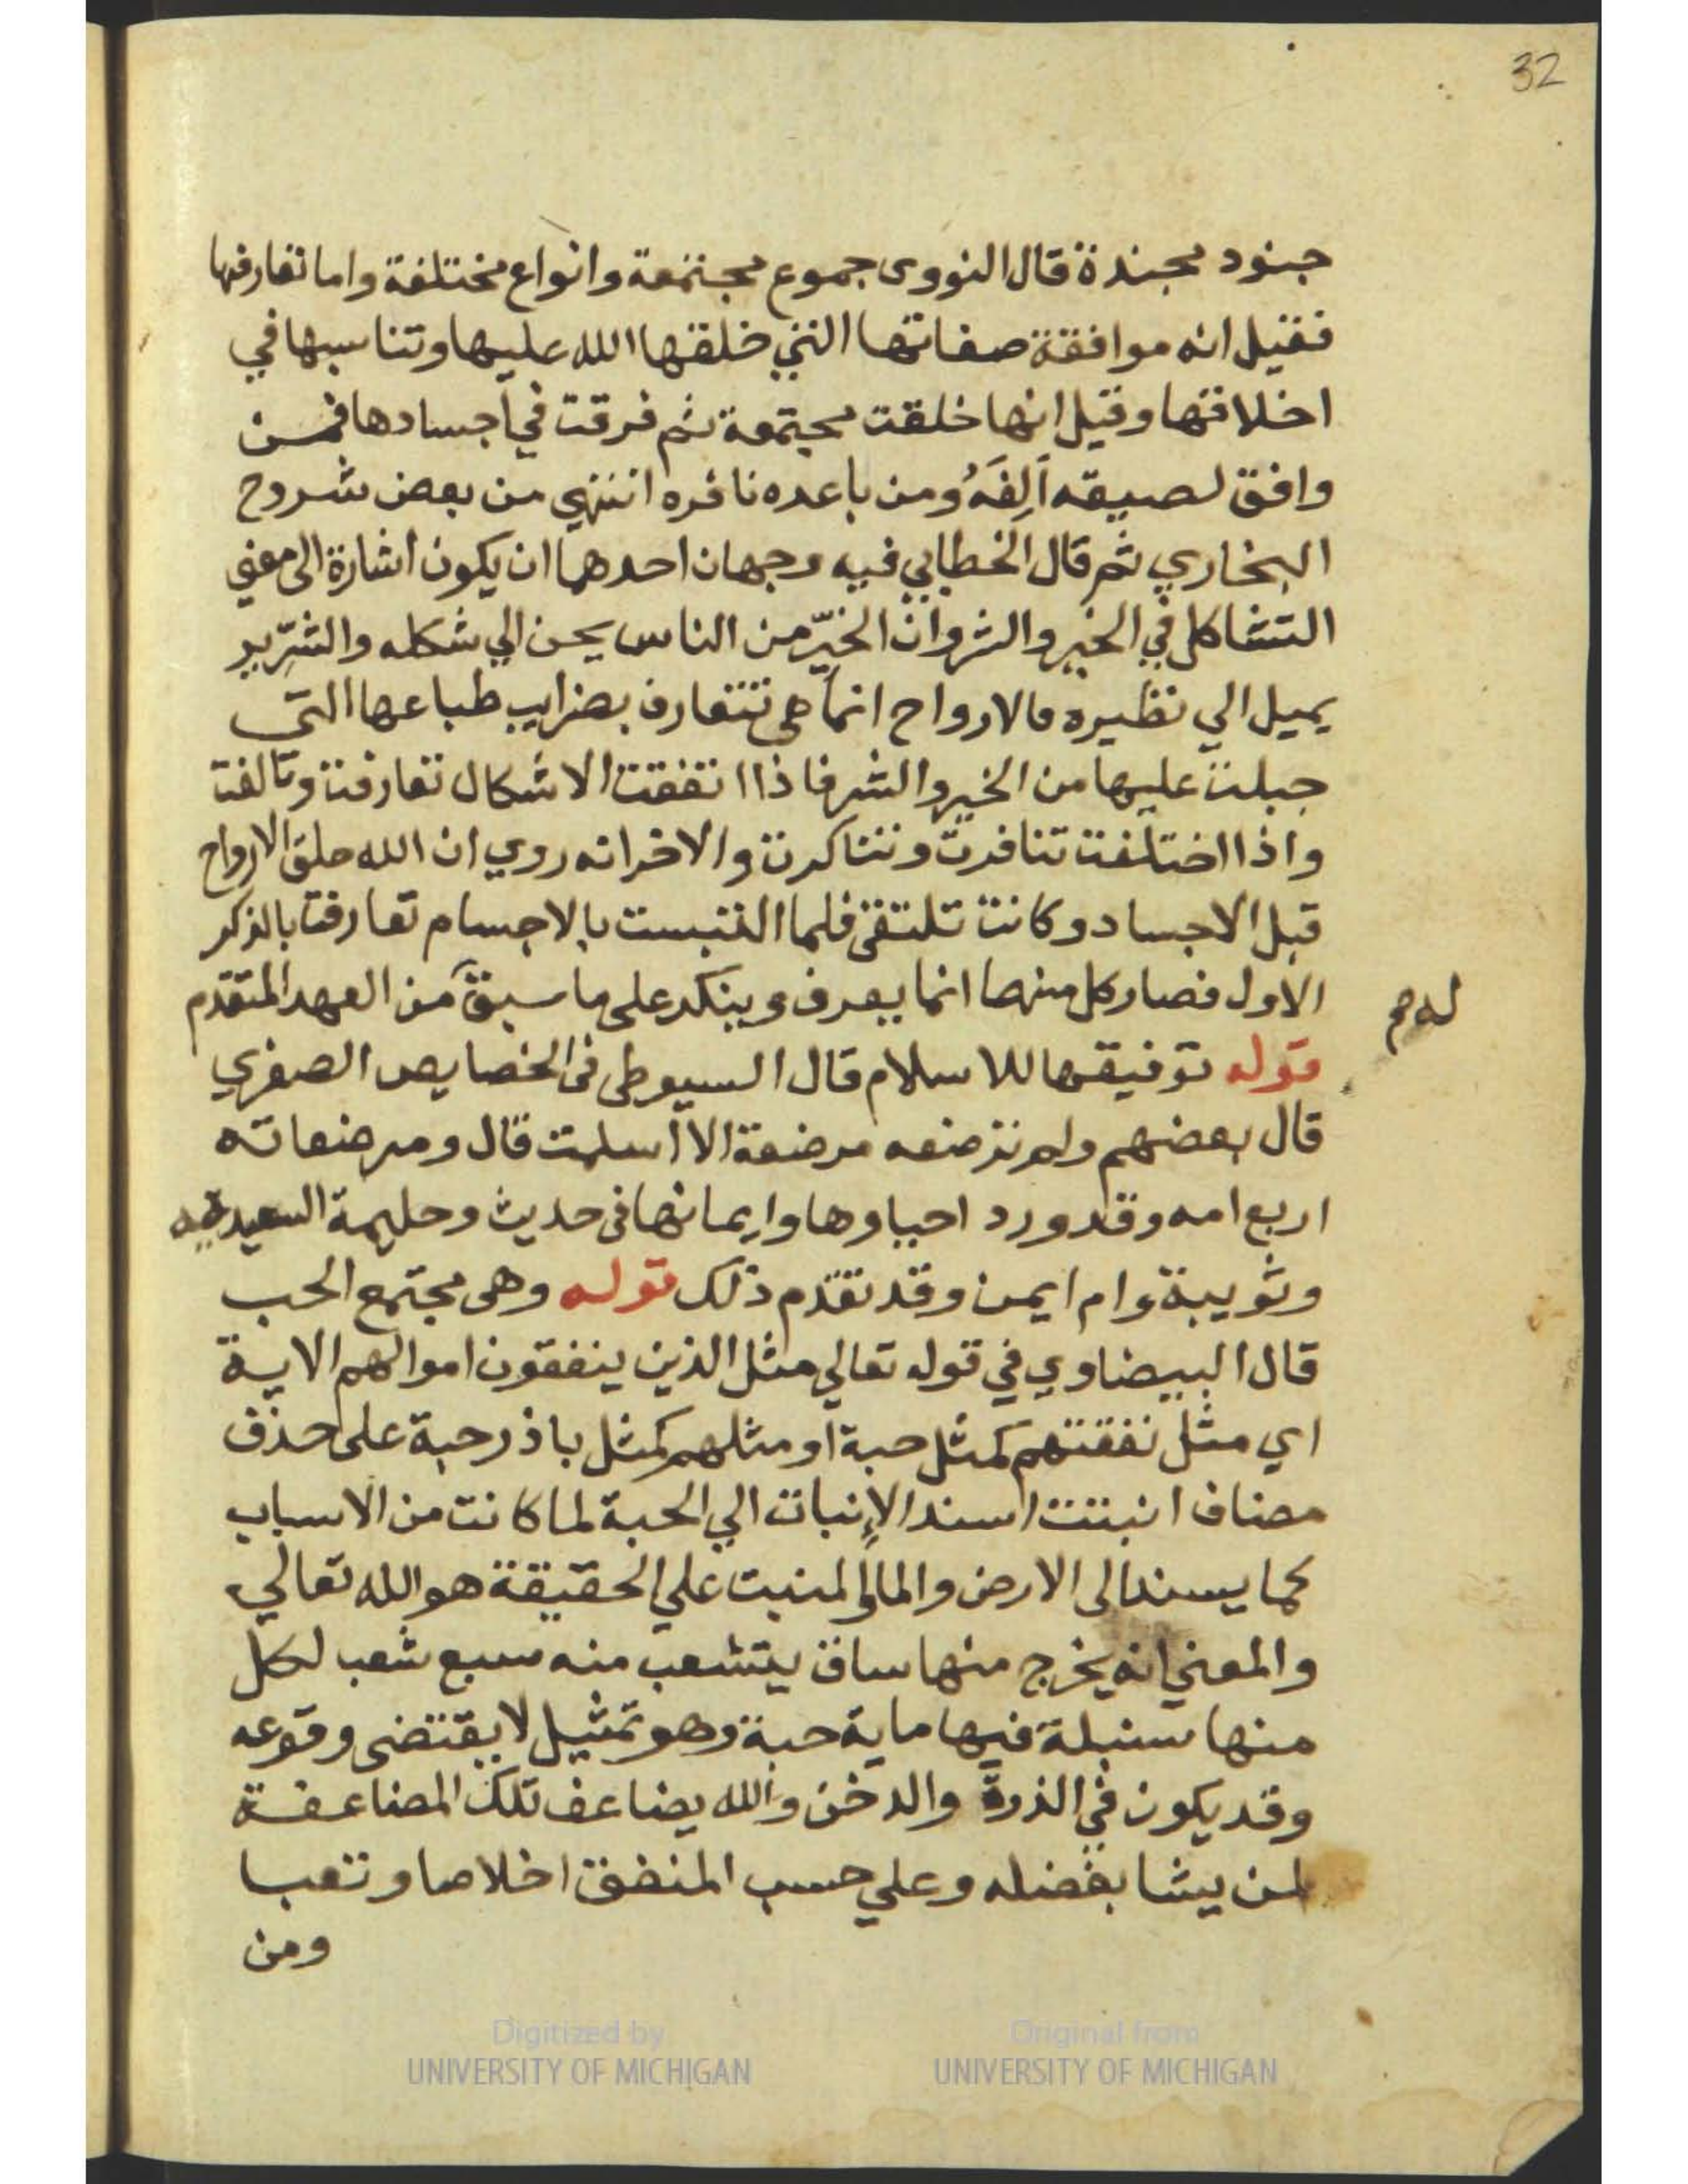 32
جنود مجندة قال النووى جموع مجتمعة وانواع مختلفة واما تعارفها
فقيل انه موافقة صفاتها التي خلقها الله عليها وتناسبها في
اخلاقها وقيل انها خلقت مجتمعة ثم فرقت في اجسادها فمن
وافق لصيقه اَلِفَهُ ومن باعده نافره انتهي من بعض شروح
البخاري ثم قال الخطابي فيه وجهان احدهما ان يكون اشارة الى معني
التشاكل في الخير والشر وان الخيّر من الناس يحن الي شكله والشّرير
يميل الي نظيره فالارواح انما هى تتعارف بضرايب طباعها التى
جبلت عليها من الخير والشر فاذا اتفقت الاشكال تعارفت وتالفت
واذا اختلفت تنافرت وتناكرت والاخر انه روي ان الله خلق الارواح
قبل الاجساد وكانت تلتقى فلما التبست بالاجسام تعارفت بالذكر
الاول فصار كل منهما انما يعرف وينكر على ما سبق من العهد المتقدم
له صح
قوله توفيقها للاسلام قال السيوطى فى الخصايص الصغري
قال بعضهم ولم ترضعه مرضعة الا اسلمت قال ومرضعاته
اربع امه وقد ورد احياوها وايمانها فى حديث وحليمة السعيدية
وثويبة وام ايمن وقد تقدم ذلك قوله وهى مجتمع الحب
قال البيضاوي في قوله تعالي مثل الذين ينفقون اموالهم الاية
اي مثل نفقتهم كمثل حبة او مثلهم كمثل باذر حبة على حذف
مضاف انبتت اسند الإنبات الي الحبة لما كانت من الاسباب
كما يسند الى الارض والمال المنبت علي الحقيقة هو الله تعالي
والمعني انه يخرج منها ساق يتشعب منه سبع شعب لكل
منها سنبلة فيها ماية حبة وهو تمثيل لا يقتضى وقوعه
وقد يكون في الذرة والدخن والله يضاعف تلك المضاعفة
لمن يشا بفضله وعلي حسب المنفق اخلاصا وتعبا
ومن
Digitized by
UNIVERSITY OF MICHIGAN
Original from
UNIVERSITY OF MICHIGAN